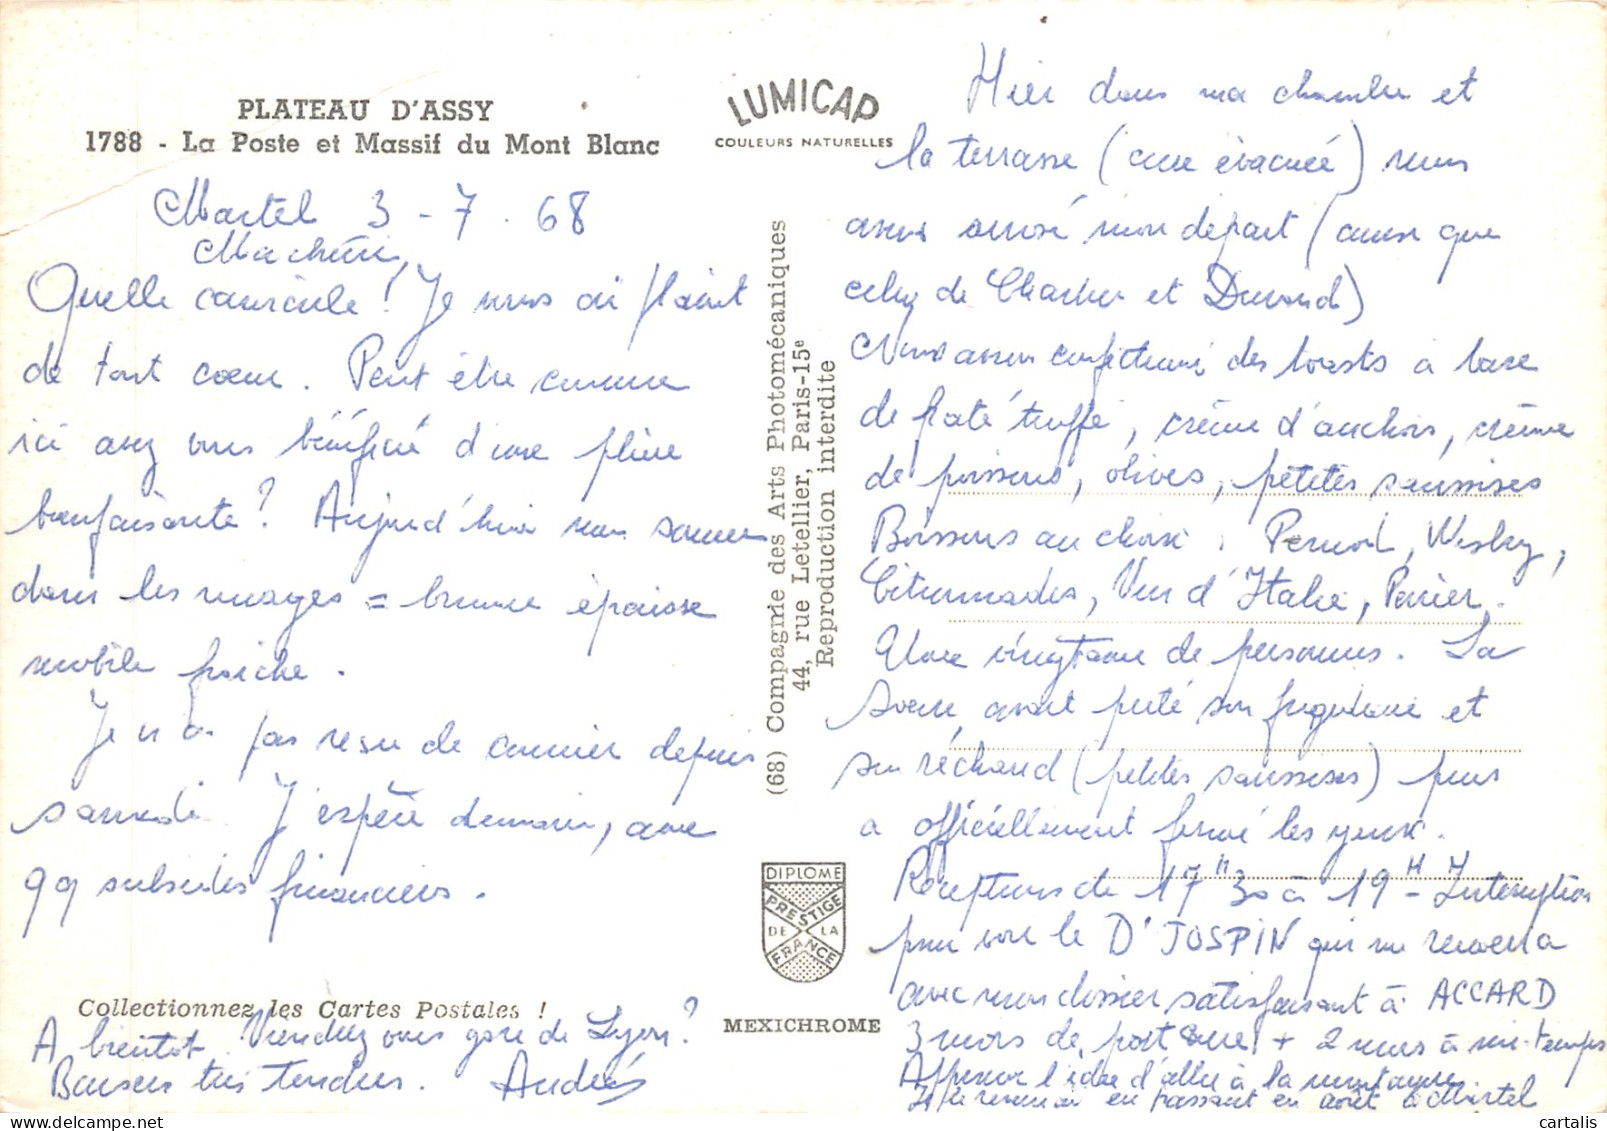 PLATEAU D'ASSY
1788 - La Poste et Massif du Mont Blanc
LUMICAP
COULEURS NATURELLES
Martel 3 - 7 . 68
Ma chérie,
Quelle canicule ! Je vous ai plaint
de tout coeur. Peut être comme
ici avez vous bénéficié d'une pluie
bienfaisante ? Aujourd'hui nous sommes
dans les nuages = brume épaisse
mobile fraiche.
Je n'ai pas reçu de courrier depuis
samedi. J'espère demain, avec
qq subsides financiers.
Collectionnez les Cartes Postales !
A bientot. Viendrez vous gare de Lyon ?
Baisers très tendres. André
(68) Compagnie des Arts Photomécaniques
44, rue Letellier, Paris-15e
Reproduction interdite
DIPLOME
PRESTIGE
DE LA
FRANCE
MEXICHROME
Hier dans ma chambre et
la terrasse (cure évacuée) nous
avons arrosé mon départ (ainsi que
celui de et Durand)
Nous avons confectionné des toasts à base
de paté truffé, crème d'anchois, crème
de poissons, olives, petites saucisses
Boissons au choix : Pernod, Wisky,
Citronnades, Vin d'Italie, Perrier.
Une vingtaine de personnes. La
Soeur avait prêté son frigidaire et
son réchaud (petites saucisses) puis
a officiellement fermé les yeux.
Réceptions de 17H 30 à 19H - Interruption
pour voir le Dr JOSPIN qui me renverra
avec mon dossier satisfaisant à ACCARD
3 mois de post cure + 2 mois à mi-temps
Approuve l'idée d'aller à la montagne
Je le reverrai en passant en août à Martel